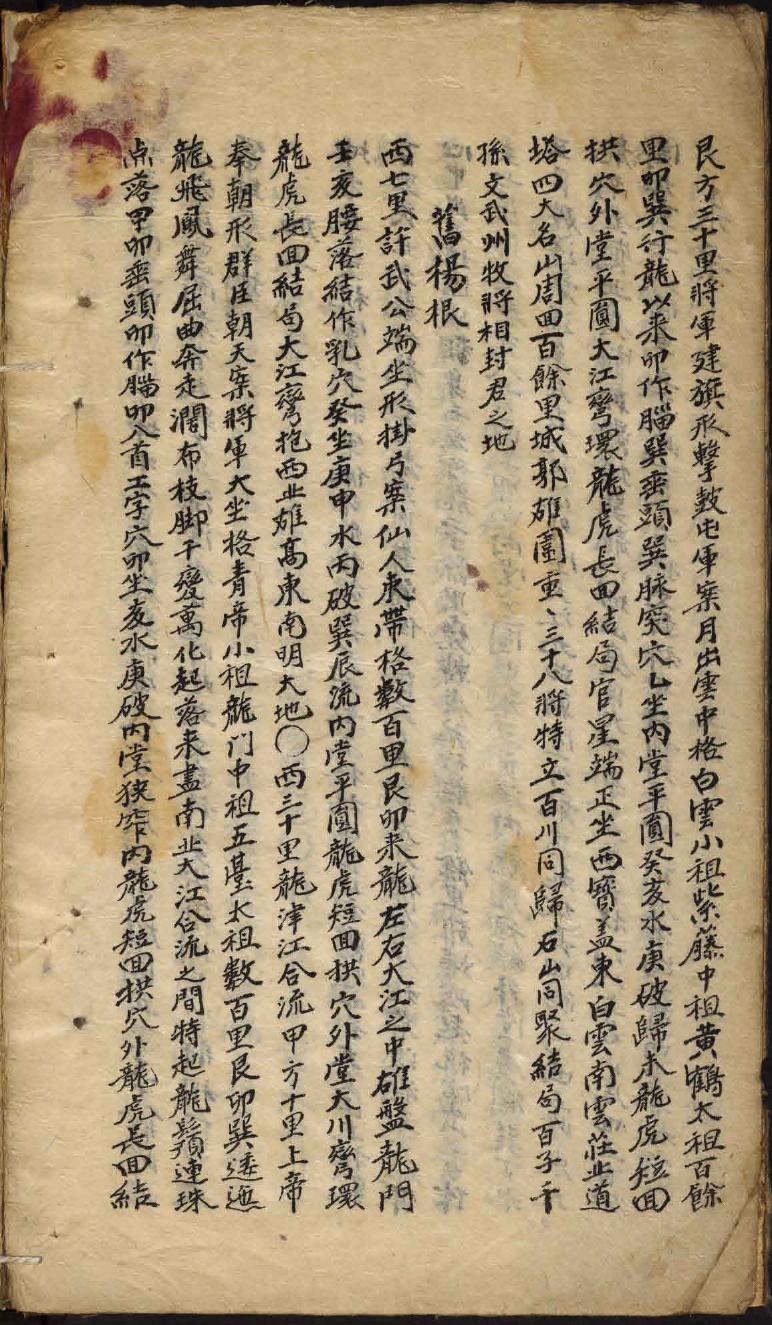 艮方三十里將軍建旗形擊鼓屯軍案月出雲中格白雲小祖紫藤中祖黃鶴太祖百餘
里卯巽行龍以来卯作腦巽垂頭巽脉突穴乚坐内堂平圓癸亥水庚破歸未龍虎短回
拱穴外堂平圓大江弯環龍虎長回結局官星端正坐西寶盖東白雲南雲莊北道
塔四大名山周回百餘里城郭雄圍重〻三十八將特立百川同歸石山同聚結局百子千
孫文武州牧將相封君之地
舊楊根
西七里許武公端坐形掛弓案仙人束帶格數百里艮卯来龍左右大江之中雄盤龍門
壬亥腰落結作乳穴癸坐庚申水丙破巽辰流内堂平圓龍虎短回拱穴外堂大川弯環
龍虎長回結局大江弯抱西北雄高東南明大地〇西三十里龍津江合流甲方十里上帝
奉朝形群臣朝天案將軍大坐格青帝小祖龍门中祖五臺太祖數百里艮卯巽逶迤
龍飛鳳舞屈曲奔走濶布枝脚千變萬化起落来盡南北大江合流之間特起龍鬚連珠
点落甲卯垂頭卯作腦卯入首工字穴卯坐亥水庚破内堂狹窄内龍虎短回拱穴外龍虎長回結